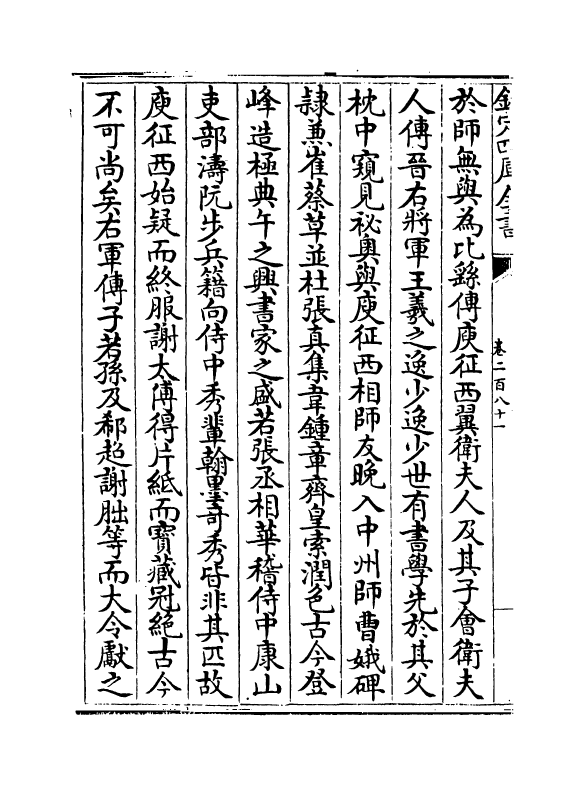 欽定四庫全書
卷二百八十一
於師無與為比繇傳庾征西翼衛夫人及其子會衛夫
人傳晉右將軍王羲之逸少逸少世有書學先於其父
枕中窺見祕奥與庾征西相師友晚入中州師曹娥碑
隷兼崔蔡草並杜張真集韋鍾章齊皇索潤色古今登
峰造極典午之興書家之盛若張丞相華稽侍中康山
吏部濤阮步兵籍向侍中秀輩翰墨竒秀皆非其匹故
庾征西始疑而終服謝太傅得片紙而寶藏冠絶古今
不可尚矣右軍傳子若孫及郗超謝朏等而大令獻之